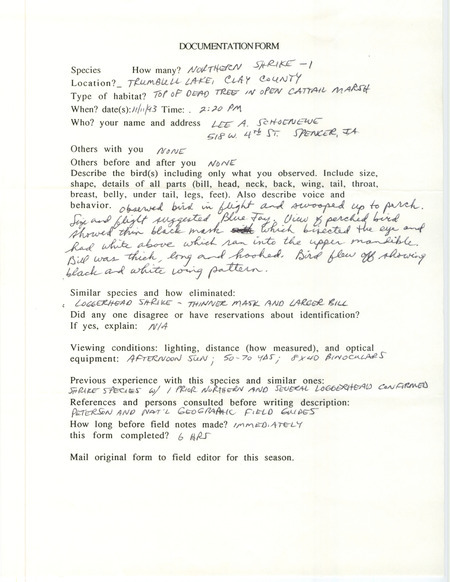 DOCUMENTATION FORM
Species How many? NORTHERN SHRIKE - 1
Location? TRUMBULL LAKE, CLAY COUNTY
Type of habitat? TOP OF DEAD TREE IN OPEN CATTAIL MARSH
When? date(s): 11/11/93 Time: . 2:20 PM
Who? your name and address LEE A. SCHOENEWE
518 W. 4th ST. SPENCER, IA
Others with you NONE
Others before and after you NONE
Describe the bird(s) including only what you observed. Include size,
shape, details of all parts (bill, head, neck, back, wing, tail, throat,
breast, belly, under tail, legs, feet). Also describe voice and
behavior. observed bird in flight and swooped up to perch.
Size and flight suggested Blue Jay. View of perched bird
showed thin black mask which bisected the eye and
had white above which ran into the upper mandible.
Bill was thick, long and hooked. Bird flew off showing
black and white wing pattern.
Similar species and how eliminated:
LOGGERHEAD SHRIKE - THINNER MASK AND LARGER BILL
Did any one disagree or have reservations about identification?
If yes, explain: N/A
Viewing conditions: lighting, distance (how measured), and optical
equipment: AFTERNOON SUN; 50-70 YDS; 8x40 BINOCULARS
Previous experience with this species and similar ones:
SHRIKE SPECIES W/ 1 PRIOR NORTHERN AND SEVERAL LOGGERHEAD CONFIRMED
References and persons consulted before writing description:
PETERSON AND NAT'L GEOGRAPHIC FIELD GUIDES
How long before field notes made? IMMEDIATELY
this form completed? 6 HRS
Mail original form to field editor for this season.